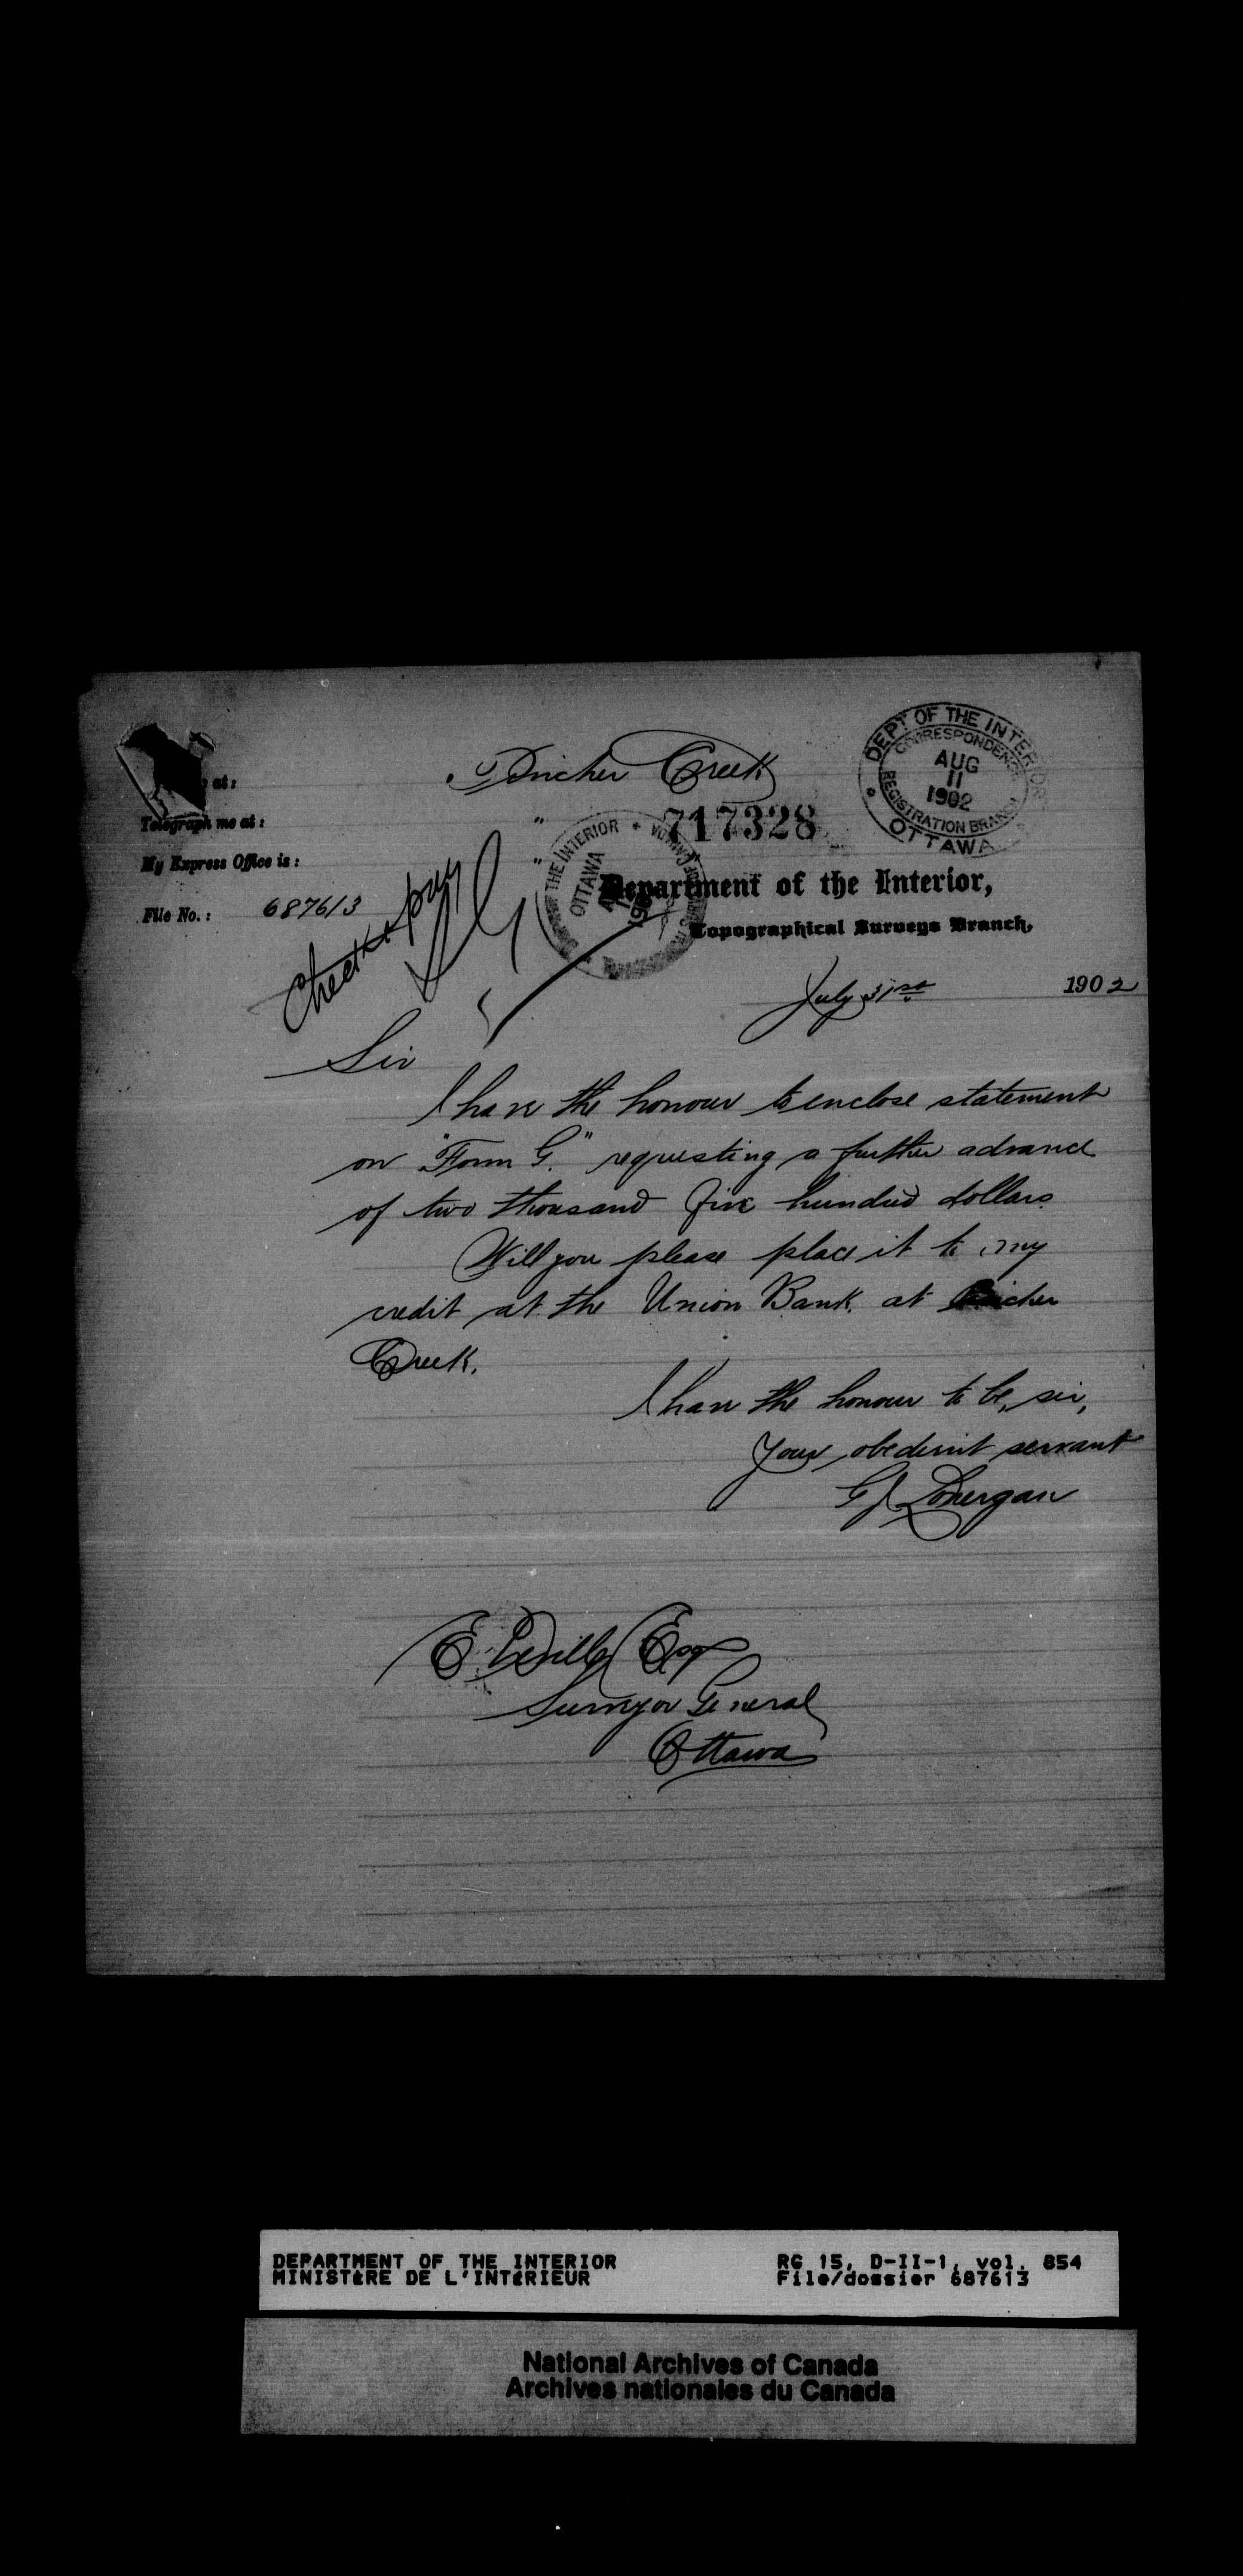 at:
Pincher Creek
DEPT OF THE INTERIOR
CORRESPONDENCE
AUG
11
1902
REGISTRATION BRANCH
OTTAWA
Telegraph me at: "
717328
My Express Office is: "
THE INTERIOR
OTTAWA
Department of the Interior,
File No.: 687613
Topographical Surveys Branch,
Check & pay
July 31st 1902
Sir
I have the honour to enclose statement
on "Form G." requesting a further advance
of two thousand five hundred dollars.
Will you please place it to my
credit at the Union Bank. at Pincher
Creek.
I have the honour to be, sir,
Your obedient servant
G J Lonergan
E. Deville Esq
Surveyor General
Ottawa
DEPARTMENT OF THE INTERIOR
MINISTÈRE DE L'INTÉRIEUR
RG 15, D-II-1, vol. 854
File/dossier 687613
National Archives of Canada
Archives nationales du Canada